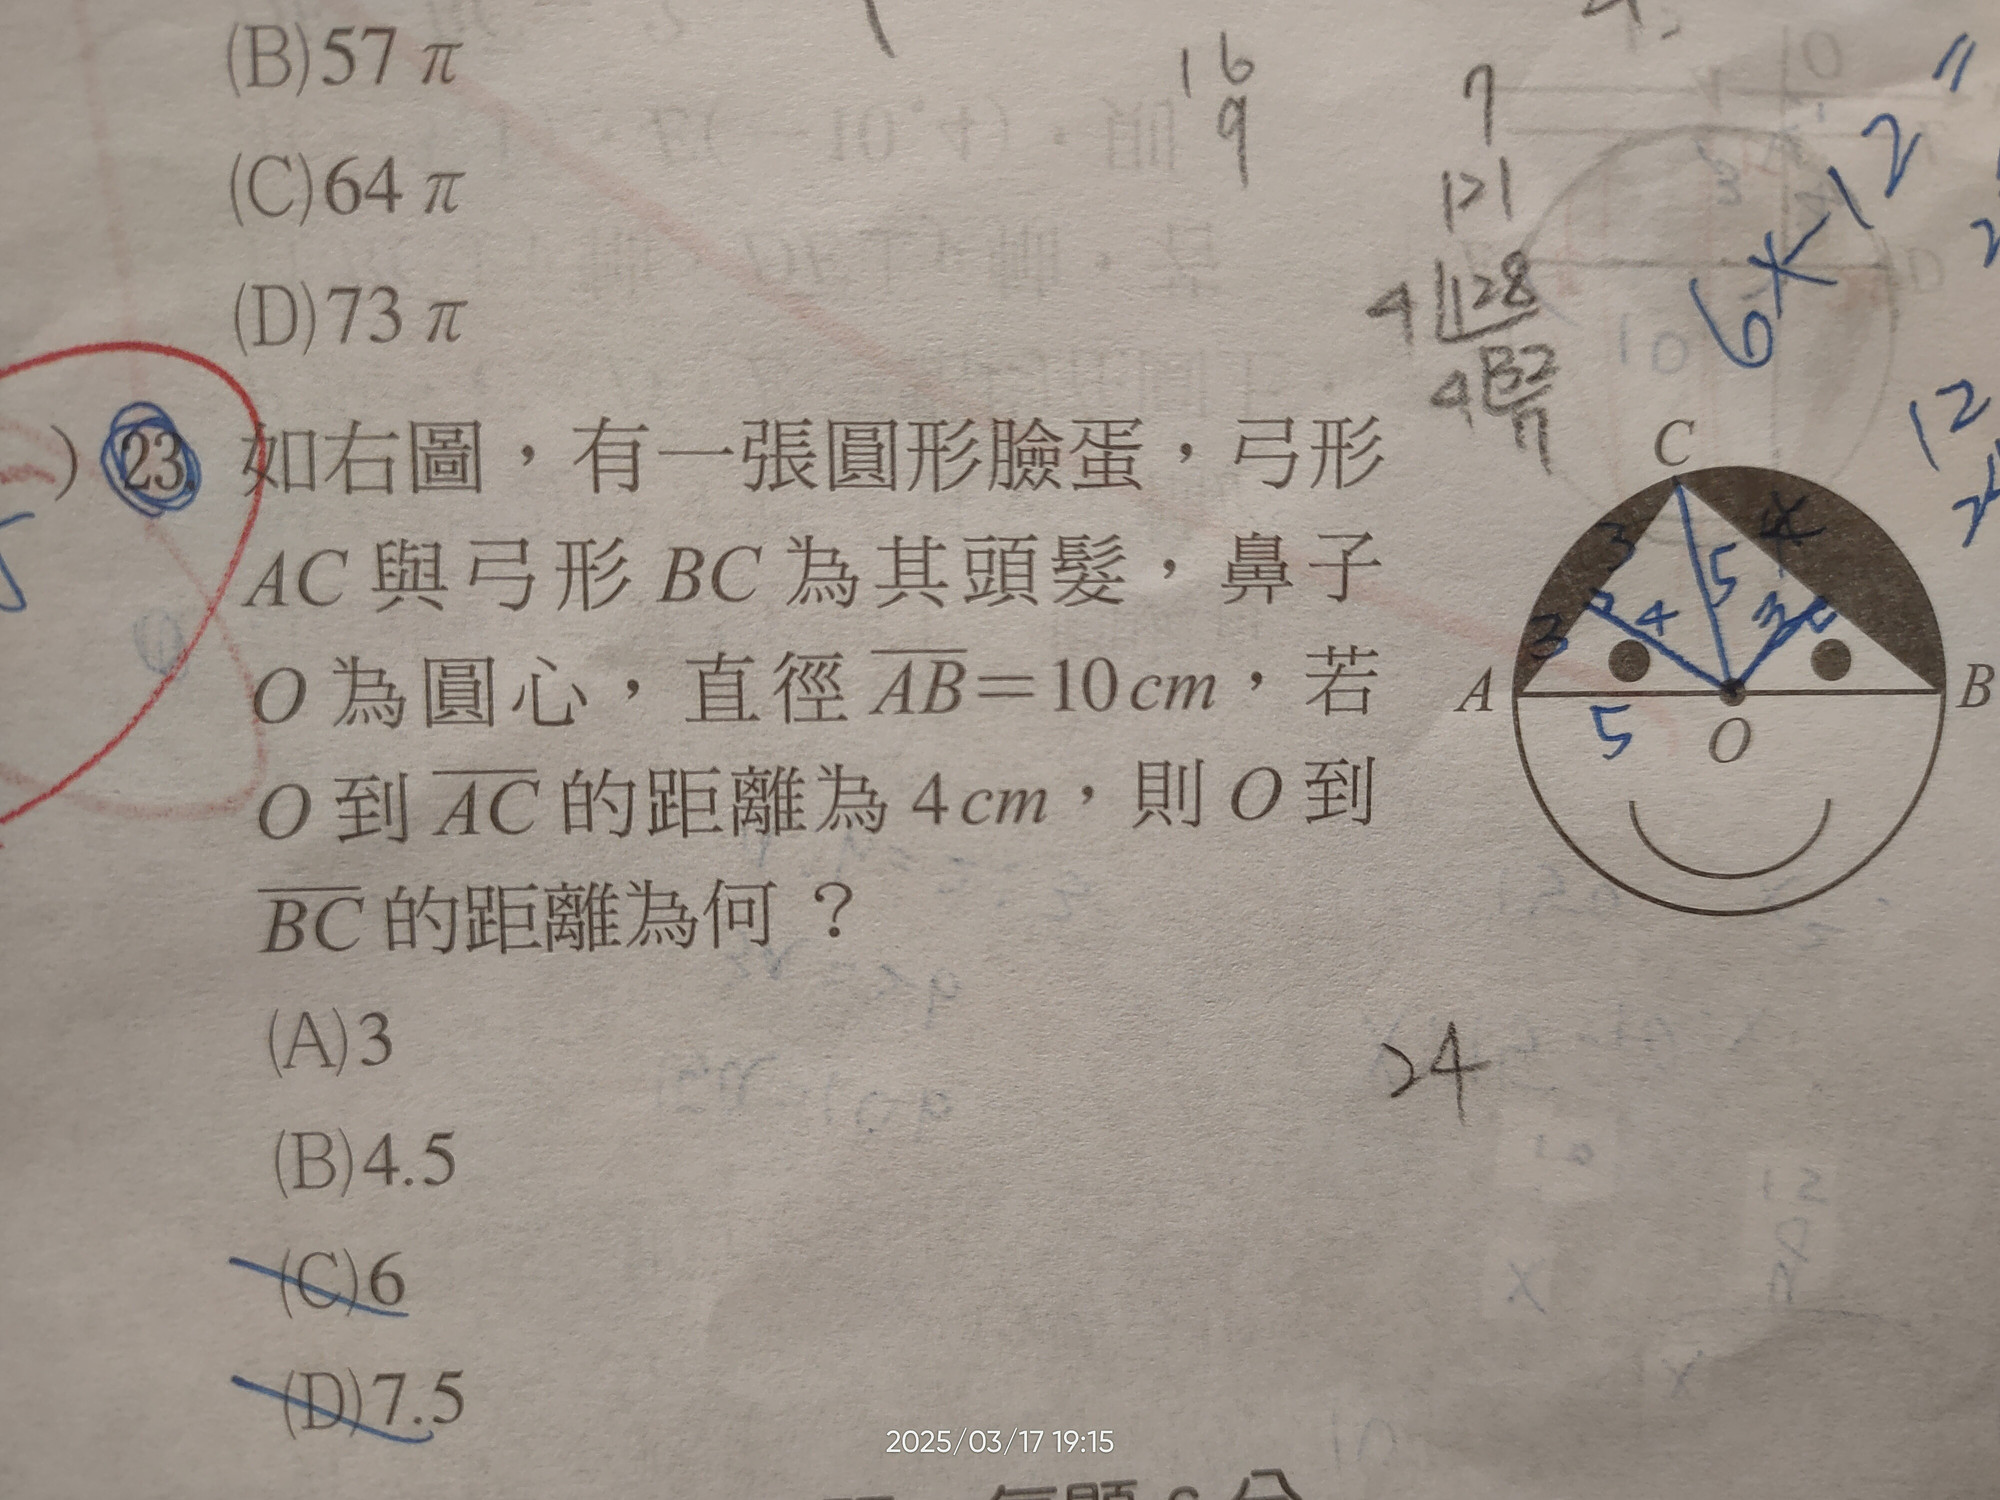 (B)57π
(C)64π
(D)73π
16
9
7
121
4 128
4 32
6×12
"
12
) 23. 如右圖，有一張圓形臉蛋，弓形
AC 與弓形 BC 為其頭髮，鼻子
O 為圓心，直徑 AB＝10cm，若
O 到 AC 的距離為 4cm，則 O 到
BC 的距離為何？
C
3
4
5
3
4
3
A
B
5
O
(A)3
(B)4.5
(C)6
(D)7.5
24
2025/03/17 19:15